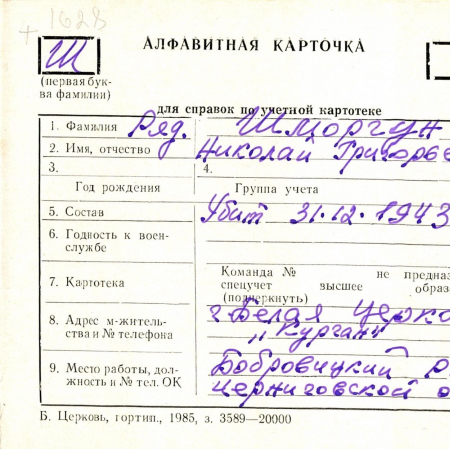 + 1628
Ш
АЛФАВИТНАЯ КАРТОЧКА
(первая бук-
ва фамилии)
для справок по учетной картотеке
1. Фамилия Ряд. Шморгун
2. Имя, отчество Николай Григорье
3.
Год рождения
4.
Группа учета
5. Состав Убит 31.12.1943
6. Годность к воен-
службе
7. Картотека
Команда № не предназ
спецучет высшее образ
(подчеркнуть)
8. Адрес м-житель-
ства и № телефона
г. Белая Церко
„Курган"
9. Место работы, дол-
жность и № тел. ОК
Бобровицкий р
Черниговской о
Б. Церковь, гортип., 1985, з. 3589—20000